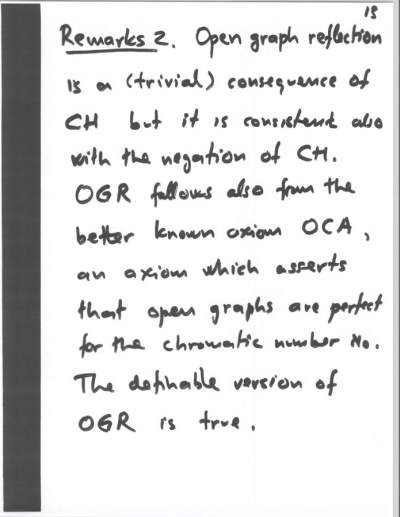 15
Remarks 2. Open graph reflection
is a (trivial) consequence of
CH but it is consistent also
with the negation of CH.
OGR follows also from the
better known axiom OCA,
an axiom which asserts
that open graphs are perfect
for the chromatic number ℵ0.
The definable version of
OGR is true.